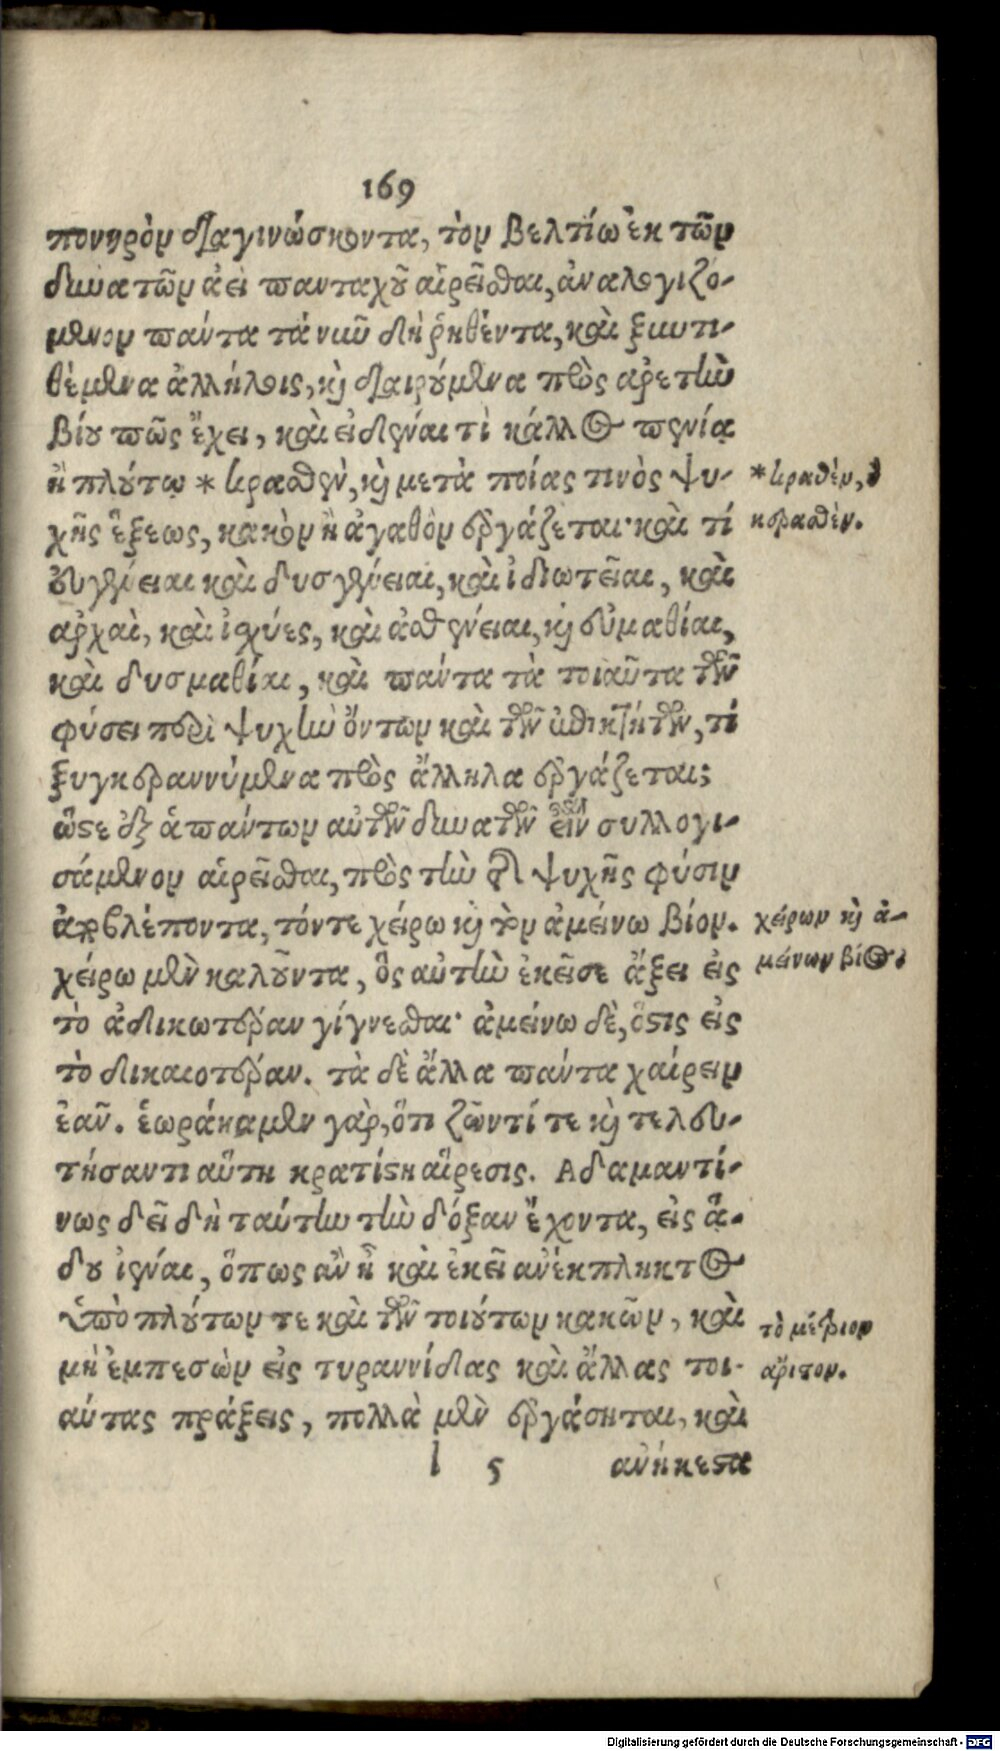 169
πονηρὸν διαγινώσκοντα, τὸν βελτίω ἐκ τῶν
δυνατῶν ἀεὶ πανταχοῦ αἱρεῖσθαι, ἀναλογιζό-
μενον πάντα τὰ νῦν δὴ ῥηθέντα, καὶ ξυντι-
θέμενα ἀλλήλοις, καὶ διαιρούμενα πρὸς ἀρετὴν
βίου πῶς ἔχει, καὶ εἰδέναι τὶ κάλλος πενίᾳ
ἢ πλούτῳ * κραθὲν, καὶ μετὰ ποίας τινὸς ψυ-
*κραθὲν,
χῆς ἕξεως, κακὸν ἢ ἀγαθὸν ἐργάζεται· καὶ τί
κερασθὲν.
εὐγένειαι καὶ δυσγένειαι, καὶ ἰδιωτεῖαι, καὶ
ἀρχαὶ, καὶ ἰσχύες, καὶ ἀσθένειαι, καὶ εὐμαθίαι,
καὶ δυσμαθίαι, καὶ πάντα τὰ τοιαῦτα τῶν
φύσει περὶ ψυχὴν ὄντων καὶ τῶν ἐπικτήτων, τί
ξυγκεραννύμενα πρὸς ἄλληλα ἐργάζεται;
ὥστε ἐξ ἁπάντων αὐτῶν δυνατῶν εἶναι συλλογι-
σάμενον αἱρεῖσθαι, πρὸς τὴν τῆς ψυχῆς φύσιν
ἀποβλέποντα, τόν τε χείρω καὶ τὸν ἀμείνω βίον.
χείρων καὶ ἀ-
χείρω μὲν καλοῦντα, ὃς αὐτὴν ἐκεῖσε ἄξει εἰς
μείνων βίος.
τὸ ἀδικωτέραν γίγνεσθαι· ἀμείνω δὲ, ὅστις εἰς
τὸ δικαιοτέραν. τὰ δὲ ἄλλα πάντα χαίρειν
ἐᾶν. ἑωράκαμεν γὰρ, ὅτι ζῶντί τε καὶ τελευ-
τήσαντι αὕτη κρατίστη αἵρεσις. Ἀδαμαντί-
νως δεῖ δὴ ταύτην τὴν δόξαν ἔχοντα, εἰς ᾅ-
δου ἰέναι, ὅπως ἂν ᾖ καὶ ἐκεῖ ἀνέκπληκτος
ὑπὸ πλούτων τε καὶ τῶν τοιούτων κακῶν, καὶ
τὸ μέτριον
μὴ ἐμπεσὼν εἰς τυραννίδας καὶ ἄλλας τοι-
ἄριστον.
αύτας πράξεις, πολλὰ μὲν ἐργάσηται, καὶ
l 5 ἀνήκεστα
Digitalisierung gefördert durch die Deutsche Forschungsgemeinschaft - DFG